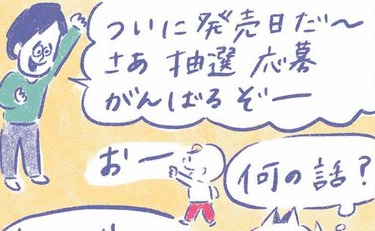 ついに発売日だ〜
さあ 抽選 応募
がんばるぞー
おー
何の話？